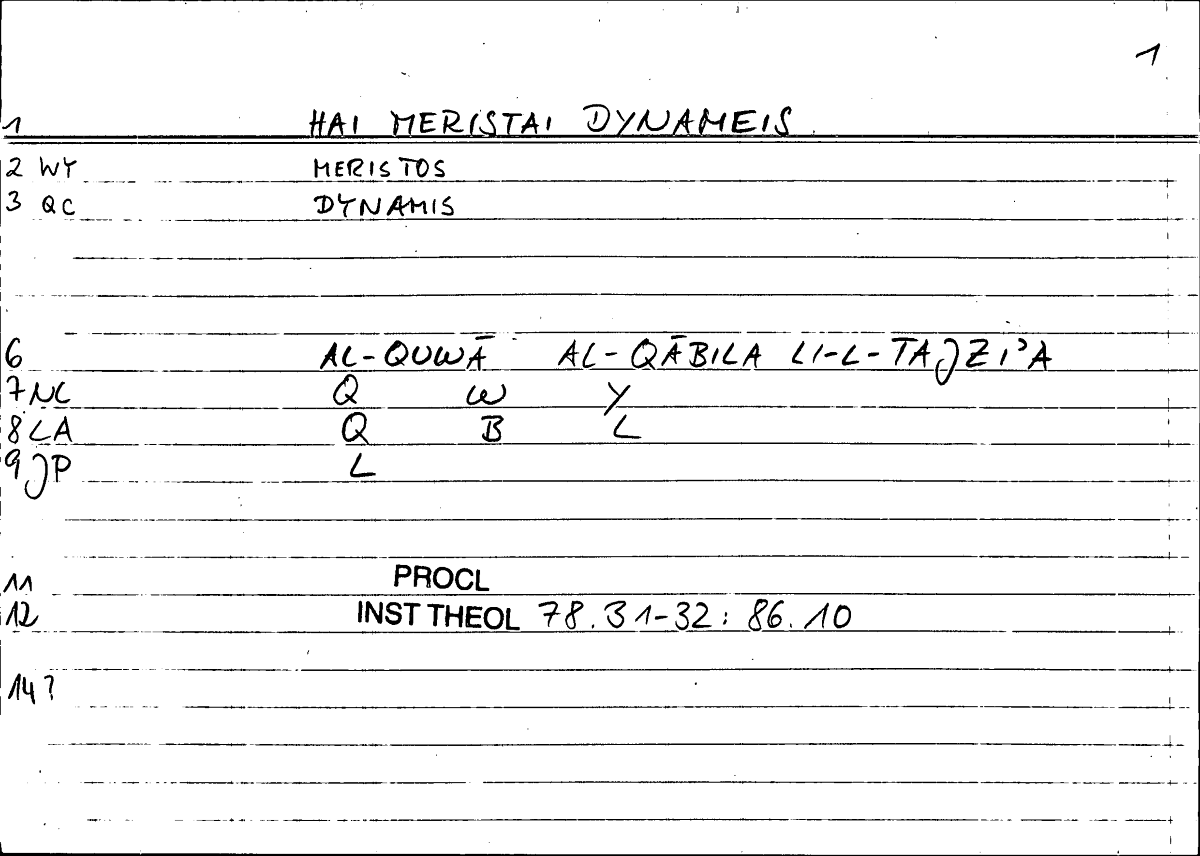 1
1 HAI MERISTAI DYNAMEIS
2 WY MERISTOS
3 QC DYNAMIS
6 AL-QUWĀ AL-QĀBILA LI-L-TAJZI'A
7 NC Q W Y
8 LA Q B L
9 JP L
11 PROCL
12 INST THEOL 78.31-32: 86.10
14?